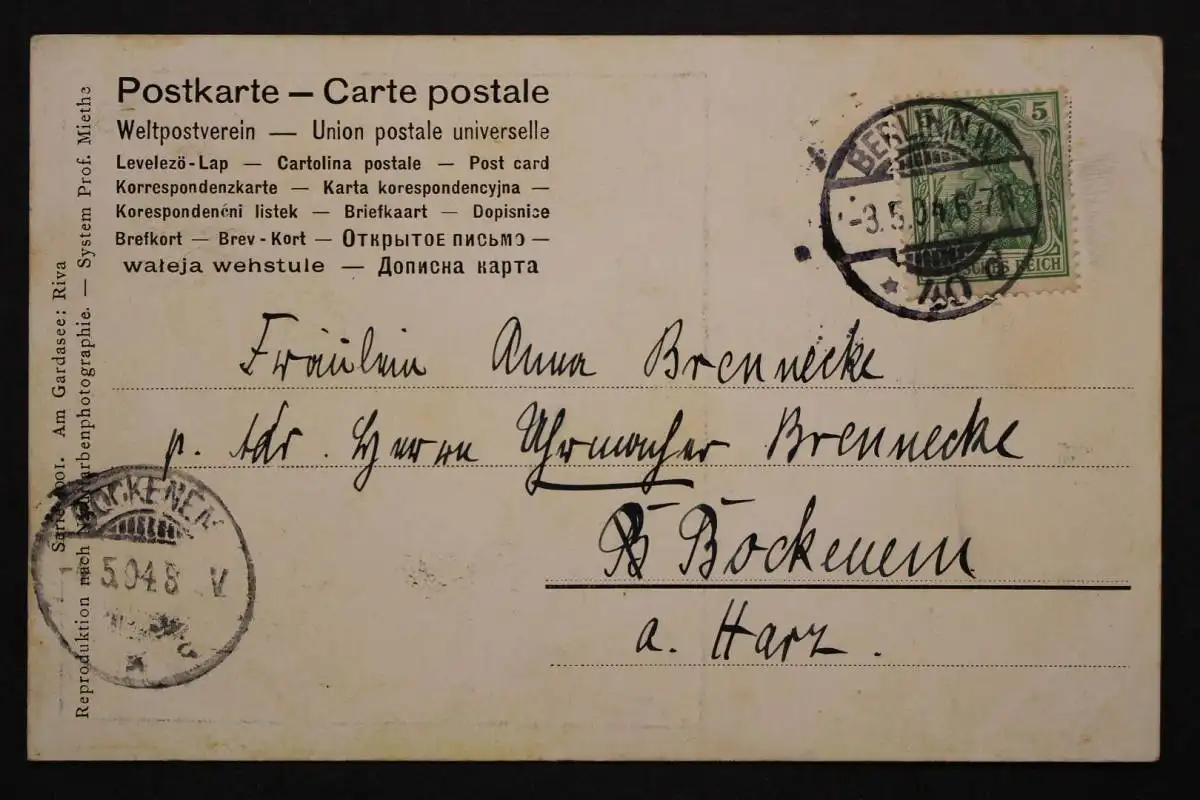 Postkarte — Carte postale
Weltpostverein — Union postale universelle
Levelezö-Lap — Cartolina postale — Post card
Korrespondenzkarte — Karta korespondencyjna —
Korespondenćni listek — Briefkaart — Dopisnice
Brefkort — Brev-Kort — Открытое письмо —
wałeja wehstule — Дописна карта
5
DEUTSCHES REICH
BERLIN N.W.
-3.5.04.6-7N
Fräulein Anna Brennecke
p. Adr. Herrn Uhrmacher Brennecke
B Bockenem
a. Harz.
BOCKENEM
5.04.8 V
Am Gardasee: Riva
Reproduktion nach Naturfarbenphotographie. — System Prof. Miethe